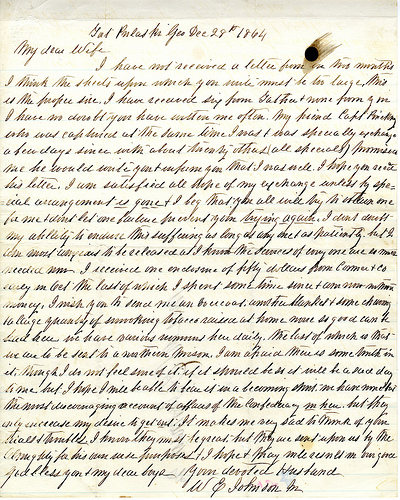 Fort Pulaski Geo Dec 28th 1864
My dear Wife
I have not received a letter from you in two months
I think the sheets upon which you write must be too large, this
is the proper size. I have received six from Father & none from you
I have no doubt you have written me often. My friend Capt
who was captured at the same time I was & was specially exchanged
a few days since with about twenty others (all specials) promised
me he would write you & inform you that I was well. I hope you recd
his letter. I am satisfied all hope of my exchange unless by spe-
cial arrangement is gone & I beg that you all will try to obtain one
for me & dont let one failure prevent you trying again. I dont doubt
my ability to endure this suffering as long as any one & as patiently but I
am most anxious to be released as I know the services of every one are so much
needed now. I received one enclosure of fifty dollars from
the last of which I spent some time since & am now without
money. I wish you to send me an overcoat, another blanket & some
a large quantity of smoking tobacco raised at home none so good can be
had here. We have various rumors here daily, the last of which is that
we are to be sent to a northern Prison. I am afraid there is some truth in
it, though I do not feel sure of it, if it should be so it will be a sad day
to me, but I hope I will be able to bear it in a becoming
the most discouraging account of affairs of the Confederacy but they
only increase my desire to get out. It makes me very sad to think of your
trials & troubles I know they must be great but they are sent upon us by the
Almighty for his own wise purposes. I hope & pray
god bless you & my dear boys. Your devoted Husband
W P Johnson